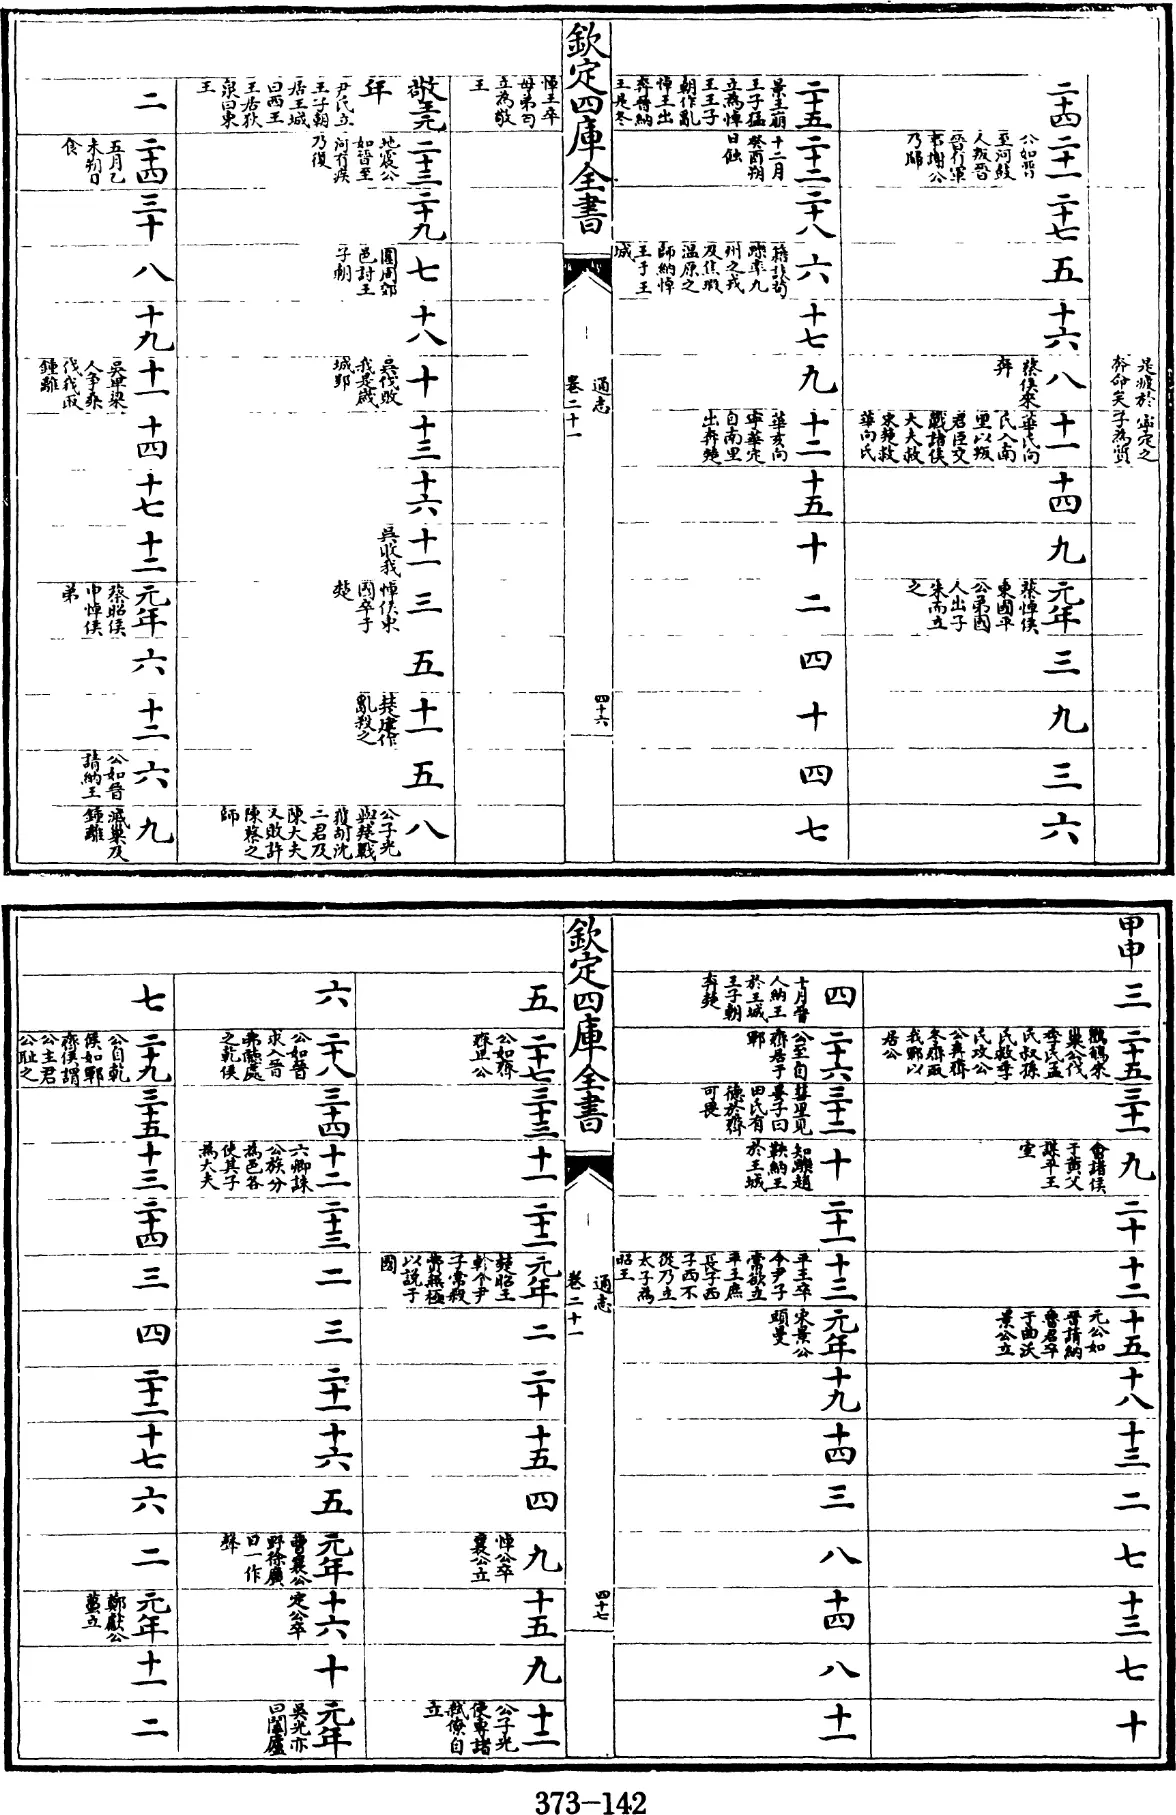 是疲於奔命矣
寧定之子為質
二十四
二十一 公如晉至河鼓人叛晉晉有軍事謝公乃歸
二十七
五
十六
八 蔡侯來奔
十一 華氏向氏入南里以叛君臣交戰諸侯大夫救宋楚救華向氏
十四
九
元年 蔡悼侯東國平公弟國人出子朱而立之
三
九
三
六
二十五 景王崩王子猛立為悼王王子朝作亂悼王出奔晉納王是冬
二十二 十二月癸酉朔日蝕
二十八
六 籍談荀躒率九州之戎及焦瑕溫原之師納悼王于王城
十七
九
十二 華亥向寧華定自南里出奔楚
十五
十
二
四
十
四
七
欽定四庫全書
通志
卷二十一
四十六
悼王卒母弟匄立為敬王
敬王元年 尹氏立王子朝居王城曰西王王居狄泉曰東王
二十三 地震公如晉至河有疾乃復
二十九
七 圍周郊邑討王子朝
十八
十 吳伐敗我是歲城郢
十三
十六
十一 吳敗我
三 悼侯東國卒于楚
五
十一 楚建作亂殺之
五
八 公子光與楚戰獲胡沈二君及陳大夫又敗許陳蔡之師
二
二十四 五月乙未朔日食
三十
八
十九
十一 吳卑梁人爭桑伐我取鍾離
十四
十七
十二
元年 蔡昭侯申悼侯弟
六
十二
六 公如晉請納王
九 滅巢及鍾離
甲申
三
二十五 鸜鵒來巢公伐季氏孟氏叔孫氏救季氏攻公公奔齊冬齊取我鄆以居公
三十一
九 會諸侯于黃父謀平王室
二十
十二
十五 元公如晉請納魯君卒于曲沃景公立
十八
十三
二
七
十三
七
十
四 十月晉人納王於王城王子朝奔楚
二十六 公至自齊居于鄆
三十二 彗星見晏子曰田氏有德於齊可畏
十 知躒趙鞅納王於王城
二十一
十三 平王卒令尹子常欲立平王庶長子西子西不從乃立太子為昭王
元年 宋景公頭曼
十九
十四
三
八
十四
八
十一
欽定四庫全書
通志
卷二十一
四十七
五
二十七 公如齊齊卑公
三十三
十一
二十二
元年 楚昭王軫令尹子常殺費無極以說于國
二
二十
十五
四
九 悼公卒襄公立
十五
九
十二 公子光使專諸弒僚自立
六
二十八 公如晉求入晉弗聽處之乾侯
三十四
十二 六卿誅公族分為邑各使其子為大夫
二十三
二
三
二十一
十六
五
元年 曹襄公野徐廣曰一作聲
十六 定公卒
十
元年 吳光亦曰闔廬
七
二十九 公自乾侯如鄆齊侯謂公主君公恥之
三十五
十三
二十四
三
四
二十二
十七
六
二
元年 鄭獻公蠆立
十一
二
373-142